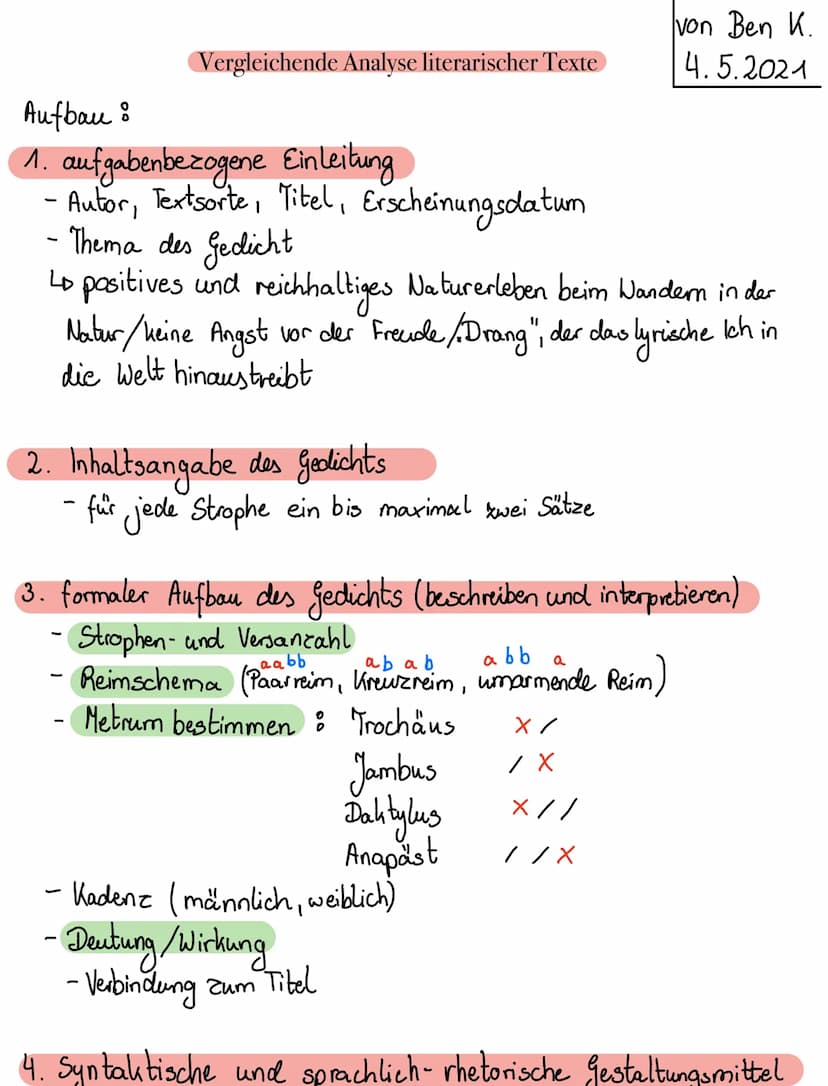 von Ben K.
4.5.2021
Vergleichende Analyse literarischer Texte
Aufbau:
1. aufgabenbezogene Einleitung
- Autor, Textsorte, Titel, Erscheinungsdatum
- Thema des Gedicht
↳ positives und reichhaltiges Naturerleben beim Wandern in der
Natur/keine Angst vor der Freude/„Drang", der das lyrische Ich in
die Welt hinaustreibt
2. Inhaltsangabe des Gedichts
- für jede Strophe ein bis maximal zwei Sätze
3. formaler Aufbau des Gedichts (beschreiben und interpretieren)
- Strophen- und Versanzahl
aabb abab abba
- Reimschema (Paarreim, Kreuzreim, umarmende Reim)
- Metrum bestimmen: Trochäus x /
Jambus / x
Daktylus x / /
Anapäst / / x
- Kadenz (männlich, weiblich)
- Deutung/Wirkung
- Verbindung zum Titel
4. Syntaktische und sprachlich-rhetorische Gestaltungsmittel